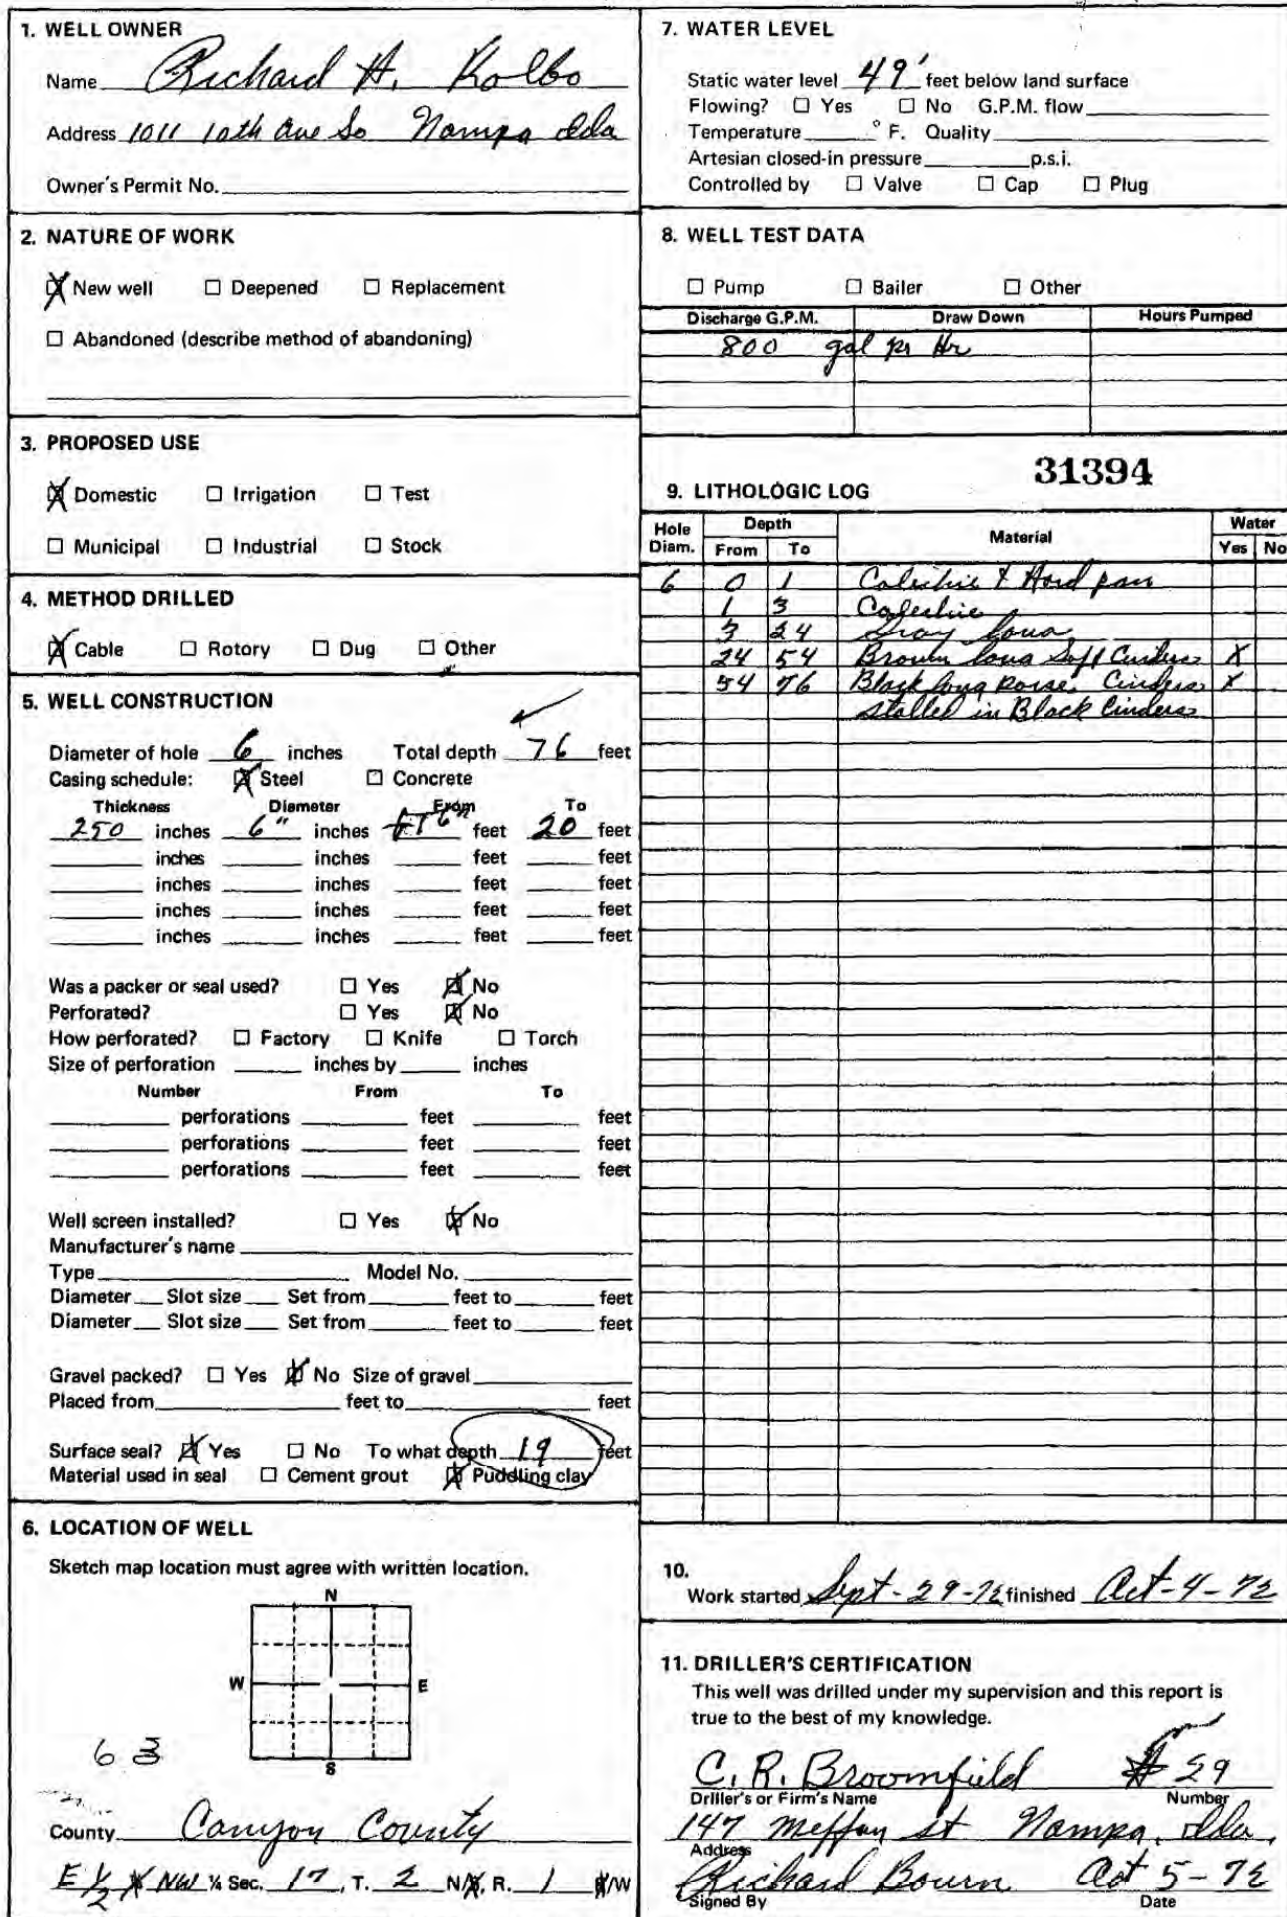 1. WELL OWNER
Name Richard H. Kolbo
Address 1011 10th Ave So Nampa Ida
Owner's Permit No.
2. NATURE OF WORK
☒ New well ☐ Deepened ☐ Replacement
☐ Abandoned (describe method of abandoning)
3. PROPOSED USE
☒ Domestic ☐ Irrigation ☐ Test
☐ Municipal ☐ Industrial ☐ Stock
4. METHOD DRILLED
☒ Cable ☐ Rotory ☐ Dug ☐ Other
5. WELL CONSTRUCTION
Diameter of hole 6 inches Total depth 76 feet
Casing schedule: ☒ Steel ☐ Concrete
Thickness Diameter From To
250 inches 6" inches feet 20 feet
inches inches feet feet
inches inches feet feet
inches inches feet feet
inches inches feet feet
Was a packer or seal used? ☐ Yes ☒ No
Perforated? ☐ Yes ☒ No
How perforated? ☐ Factory ☐ Knife ☐ Torch
Size of perforation inches by inches
Number From To
perforations feet feet
perforations feet feet
perforations feet feet
Well screen installed? ☐ Yes ☒ No
Manufacturer's name
Type Model No.
Diameter Slot size Set from feet to feet
Diameter Slot size Set from feet to feet
Gravel packed? ☐ Yes ☒ No Size of gravel
Placed from feet to feet
Surface seal? ☒ Yes ☐ No To what depth 19 feet
Material used in seal ☐ Cement grout ☒ Puddling clay
6. LOCATION OF WELL
Sketch map location must agree with written location.
N
W E
S
63
County Canyon County
E ½ NW ¼ Sec. 17, T. 2 N/S, R. 1 E/W
7. WATER LEVEL
Static water level 49' feet below land surface
Flowing? ☐ Yes ☐ No G.P.M. flow
Temperature ° F. Quality
Artesian closed-in pressure p.s.i.
Controlled by ☐ Valve ☐ Cap ☐ Plug
8. WELL TEST DATA
☐ Pump ☐ Bailer ☐ Other
Discharge G.P.M. Draw Down Hours Pumped
800 gal pr Hr
31394
9. LITHOLOGIC LOG
Hole Diam. Depth Material Water
From To Yes No
6 0 1 Calichie & Hard pan
1 3 Calechie
3 24 Gray lava
24 54 Brown lava Soft Cinders X
54 76 Black lava Cinders X
stalled in Black Cinders
10.
Work started Sept-29-72 finished Oct-4-72
11. DRILLER'S CERTIFICATION
This well was drilled under my supervision and this report is
true to the best of my knowledge.
C. R. Broomfield # 59
Driller's or Firm's Name Number
147 st Nampa, Ida,
Address
Richard Bourn Oct 5-72
Signed By Date